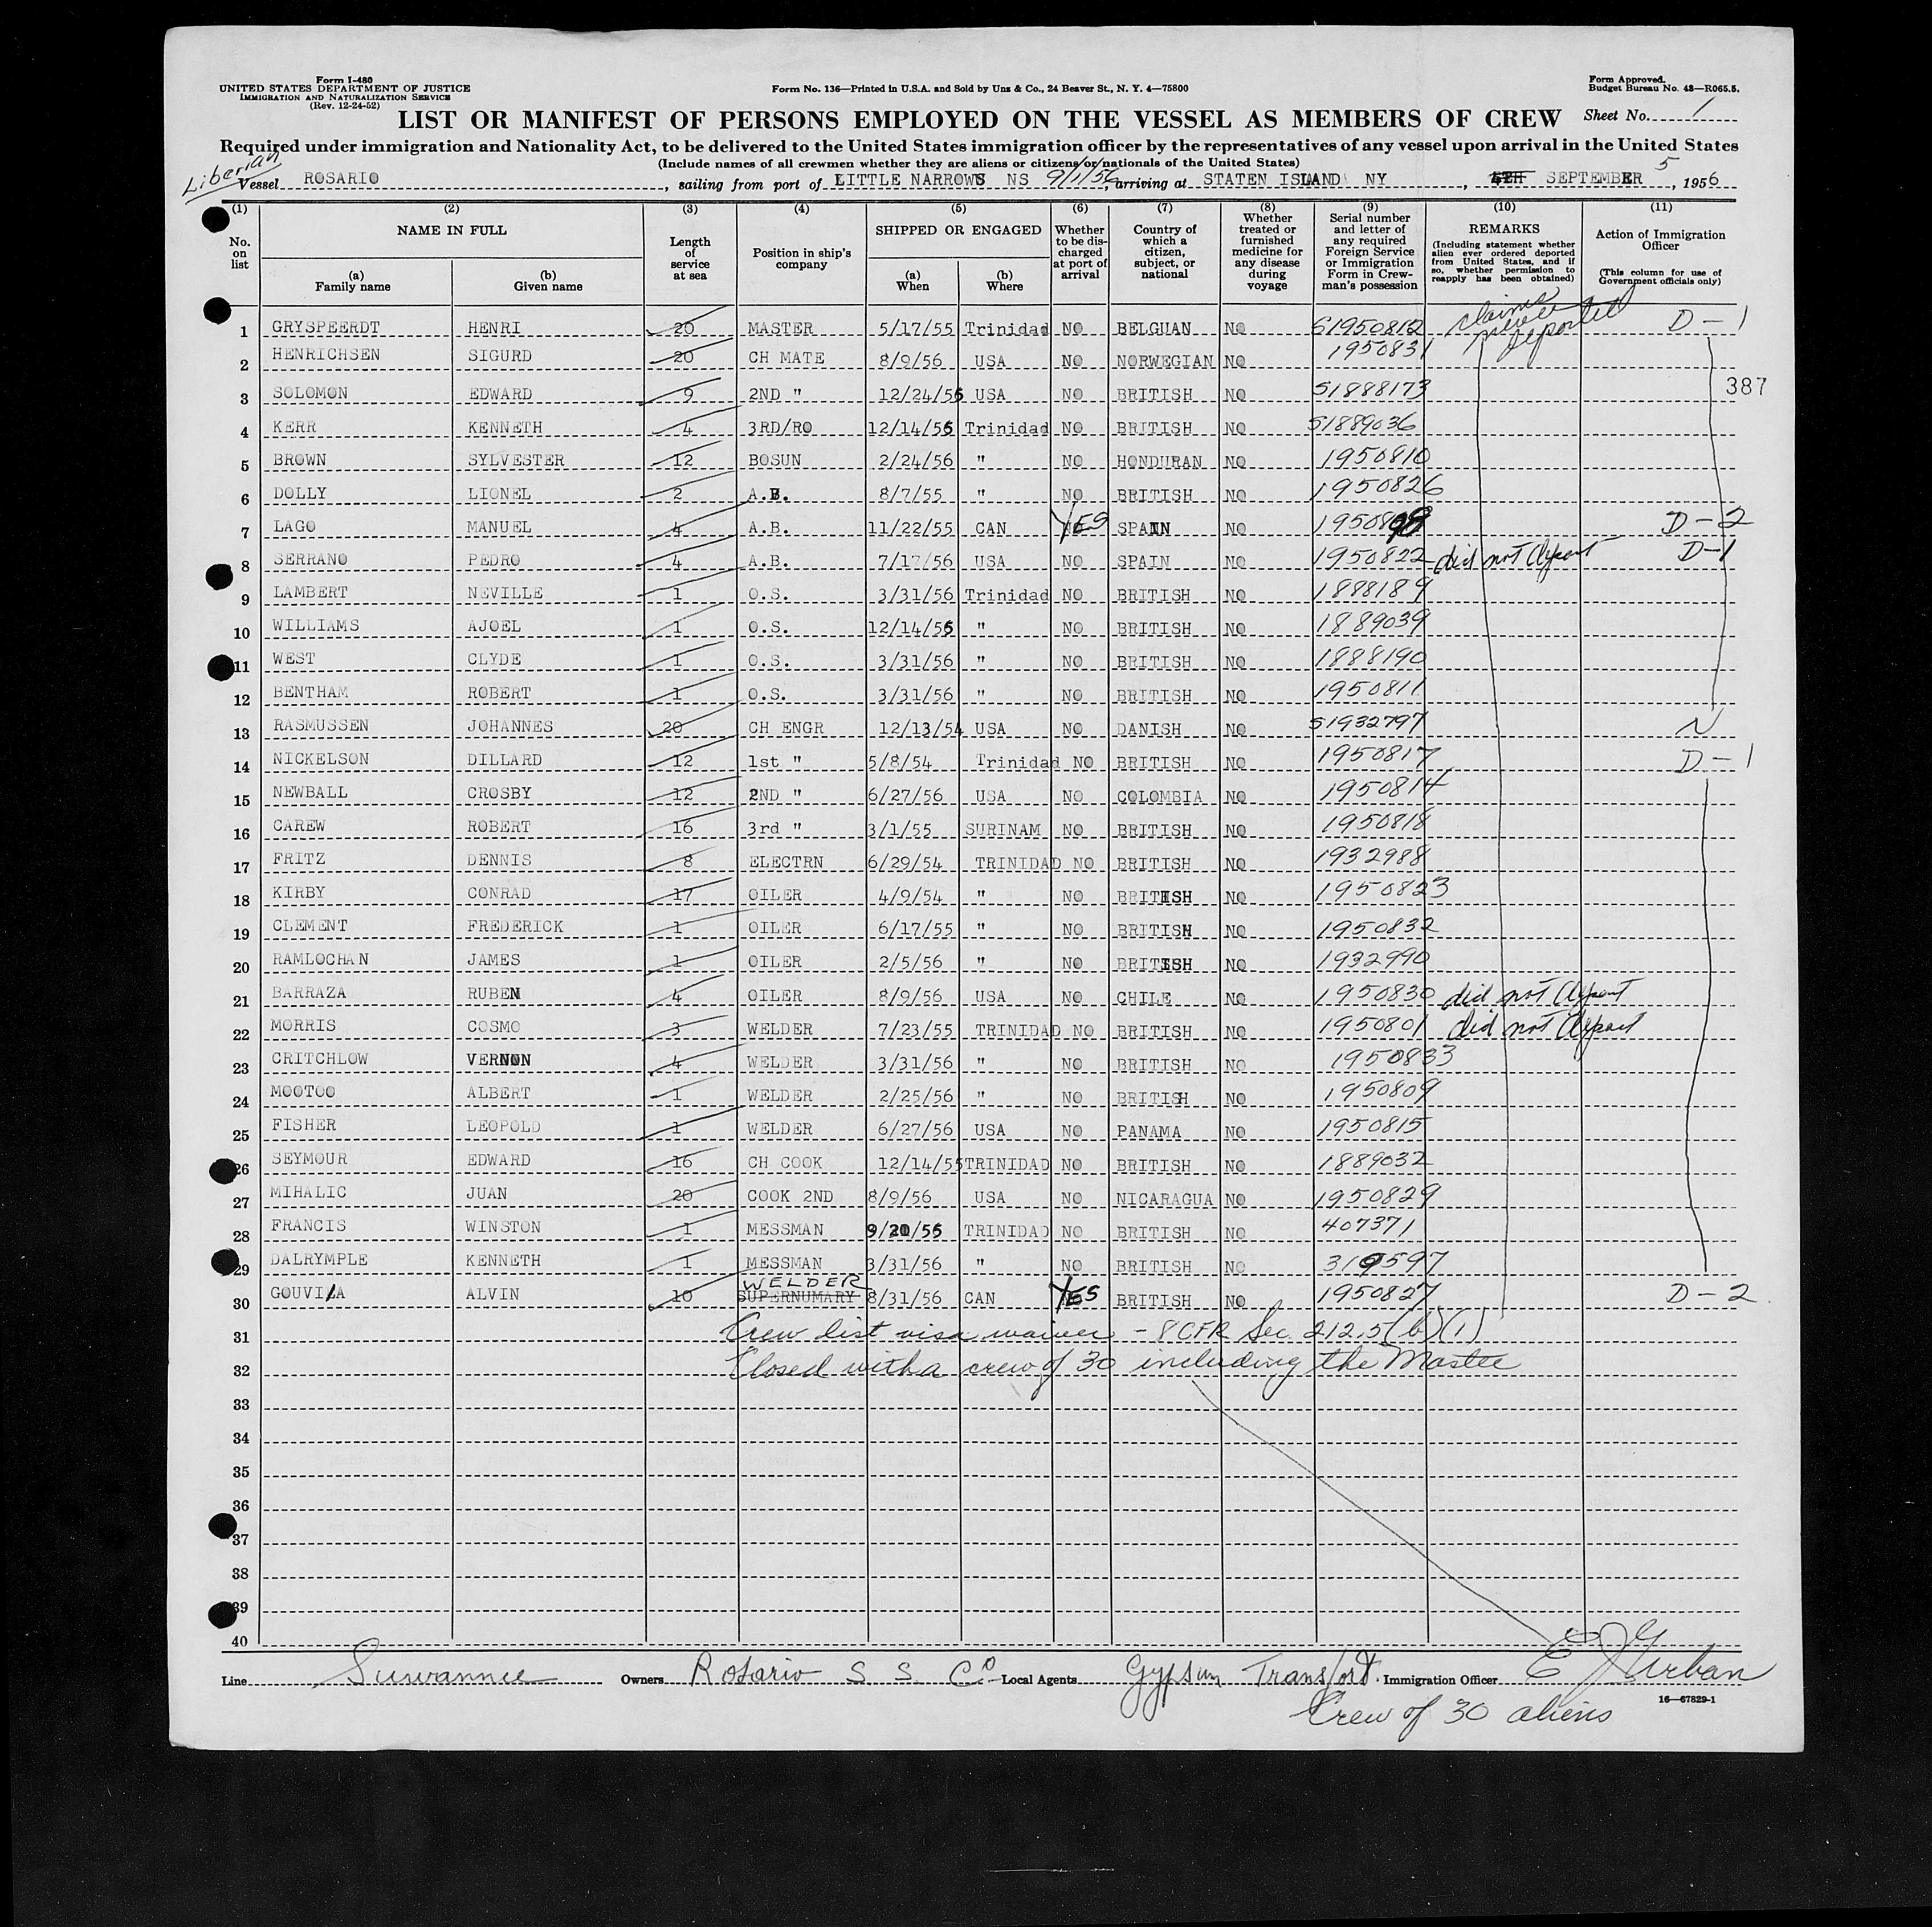 Form I-480
UNITED STATES DEPARTMENT OF JUSTICE
IMMIGRATION AND NATURALIZATION SERVICE
(Rev. 12-24-52)
Form No. 136—Printed in U.S.A. and Sold by Unz & Co., 24 Beaver St., N. Y. 4—75800
Form Approved.
Budget Bureau No. 43—R065.5.
LIST OR MANIFEST OF PERSONS EMPLOYED ON THE VESSEL AS MEMBERS OF CREW Sheet No. 1
Required under immigration and Nationality Act, to be delivered to the United States immigration officer by the representatives of any vessel upon arrival in the United States
(Include names of all crewmen whether they are aliens or citizens/or/nationals of the United States)
Liberian
Vessel ROSARIO, sailing from port of LITTLE NARROWS NS 9/1/56, arriving at STATEN ISLAND NY, 5 SEPTEMBER, 1956
(1) (2) (3) (4) (5) (6) (7) (8) (9) (10) (11)
No. on list
NAME IN FULL
(a) Family name
(b) Given name
Length of service at sea
Position in ship's company
SHIPPED OR ENGAGED
(a) When
(b) Where
Whether to be discharged at port of arrival
Country of which a citizen, subject, or national
Whether treated or furnished medicine for any disease during voyage
Serial number and letter of any required Foreign Service or Immigration Form in Crewman's possession
REMARKS
(Including statement whether alien ever ordered deported from United States, and if so, whether permission to reapply has been obtained)
Action of Immigration Officer
(This column for use of Government officials only)
claims never deported
1 GRYSPEERDT HENRI 20 MASTER 5/17/55 Trinidad NO BELGUAN NO 51950812 D-1
2 HENRICHSEN SIGURD 20 CH MATE 8/9/56 USA NO NORWEGIAN NO 1950831
387
3 SOLOMON EDWARD 9 2ND " 12/24/55 USA NO BRITISH NO 51888173
4 KERR KENNETH 4 3RD/RO 12/14/55 Trinidad NO BRITISH NO 51889036
5 BROWN SYLVESTER 12 BOSUN 2/24/56 " NO HONDURAN NO 1950810
6 DOLLY LIONEL 2 A.B. 8/7/55 " NO BRITISH NO 1950826
7 LAGO MANUEL 4 A.B. 11/22/55 CAN YES SPAIN NO D-2
8 SERRANO PEDRO 4 A.B. 7/17/56 USA NO SPAIN NO 1950822 did not depart D-1
9 LAMBERT NEVILLE 1 O.S. 3/31/56 Trinidad NO BRITISH NO 1888189
10 WILLIAMS AJOEL 1 O.S. 12/14/55 " NO BRITISH NO 1889039
11 WEST CLYDE 1 O.S. 3/31/56 " NO BRITISH NO 1888190
12 BENTHAM ROBERT 1 O.S. 3/31/56 " NO BRITISH NO 1950811
13 RASMUSSEN JOHANNES 20 CH ENGR 12/13/54 USA NO DANISH NO 51932797 N
14 NICKELSON DILLARD 12 1st " 5/8/54 Trinidad NO BRITISH NO 1950817 D-1
15 NEWBALL CROSBY 12 2ND " 6/27/56 USA NO COLOMBIA NO 1950814
16 CAREW ROBERT 16 3rd " 3/1/55 SURINAM NO BRITISH NO 1950818
17 FRITZ DENNIS 8 ELECTRN 6/29/54 TRINIDAD NO BRITISH NO 1932988
18 KIRBY CONRAD 17 OILER 4/9/54 " NO BRITISH NO 1950823
19 CLEMENT FREDERICK 1 OILER 6/17/55 " NO BRITISH NO 1950832
20 RAMLOCHAN JAMES 1 OILER 2/5/56 " NO BRITISH NO 1932990
21 BARRAZA RUBEN 4 OILER 8/9/56 USA NO CHILE NO 1950830 did not depart
22 MORRIS COSMO 3 WELDER 7/23/55 TRINIDAD NO BRITISH NO 1950801 did not depart
23 CRITCHLOW VERNON 4 WELDER 3/31/56 " NO BRITISH NO 1950833
24 MOOTOO ALBERT 1 WELDER 2/25/56 " NO BRITISH NO 1950809
25 FISHER LEOPOLD 1 WELDER 6/27/56 USA NO PANAMA NO 1950815
26 SEYMOUR EDWARD 16 CH COOK 12/14/55 TRINIDAD NO BRITISH NO 1889032
27 MIHALIC JUAN 20 COOK 2ND 8/9/56 USA NO NICARAGUA NO 1950829
28 FRANCIS WINSTON 1 MESSMAN TRINIDAD NO BRITISH NO 407371
29 DALRYMPLE KENNETH 1 MESSMAN 3/31/56 " NO BRITISH NO
WELDER
30 GOUVIA ALVIN 10 SUPERNUMARY 8/31/56 CAN YES BRITISH NO 1950827 D-2
31 Crew list visa waiver - 8 CFR Sec. 212.5(b)(1)
32 Closed with a crew of 30 including the Master
33
34
35
36
37
38
39
40
Line Suwannee Owners Rosario S S Co Local Agents Gypsum Transport. Immigration Officer E J Urban
16—67829-1
Crew of 30 aliens